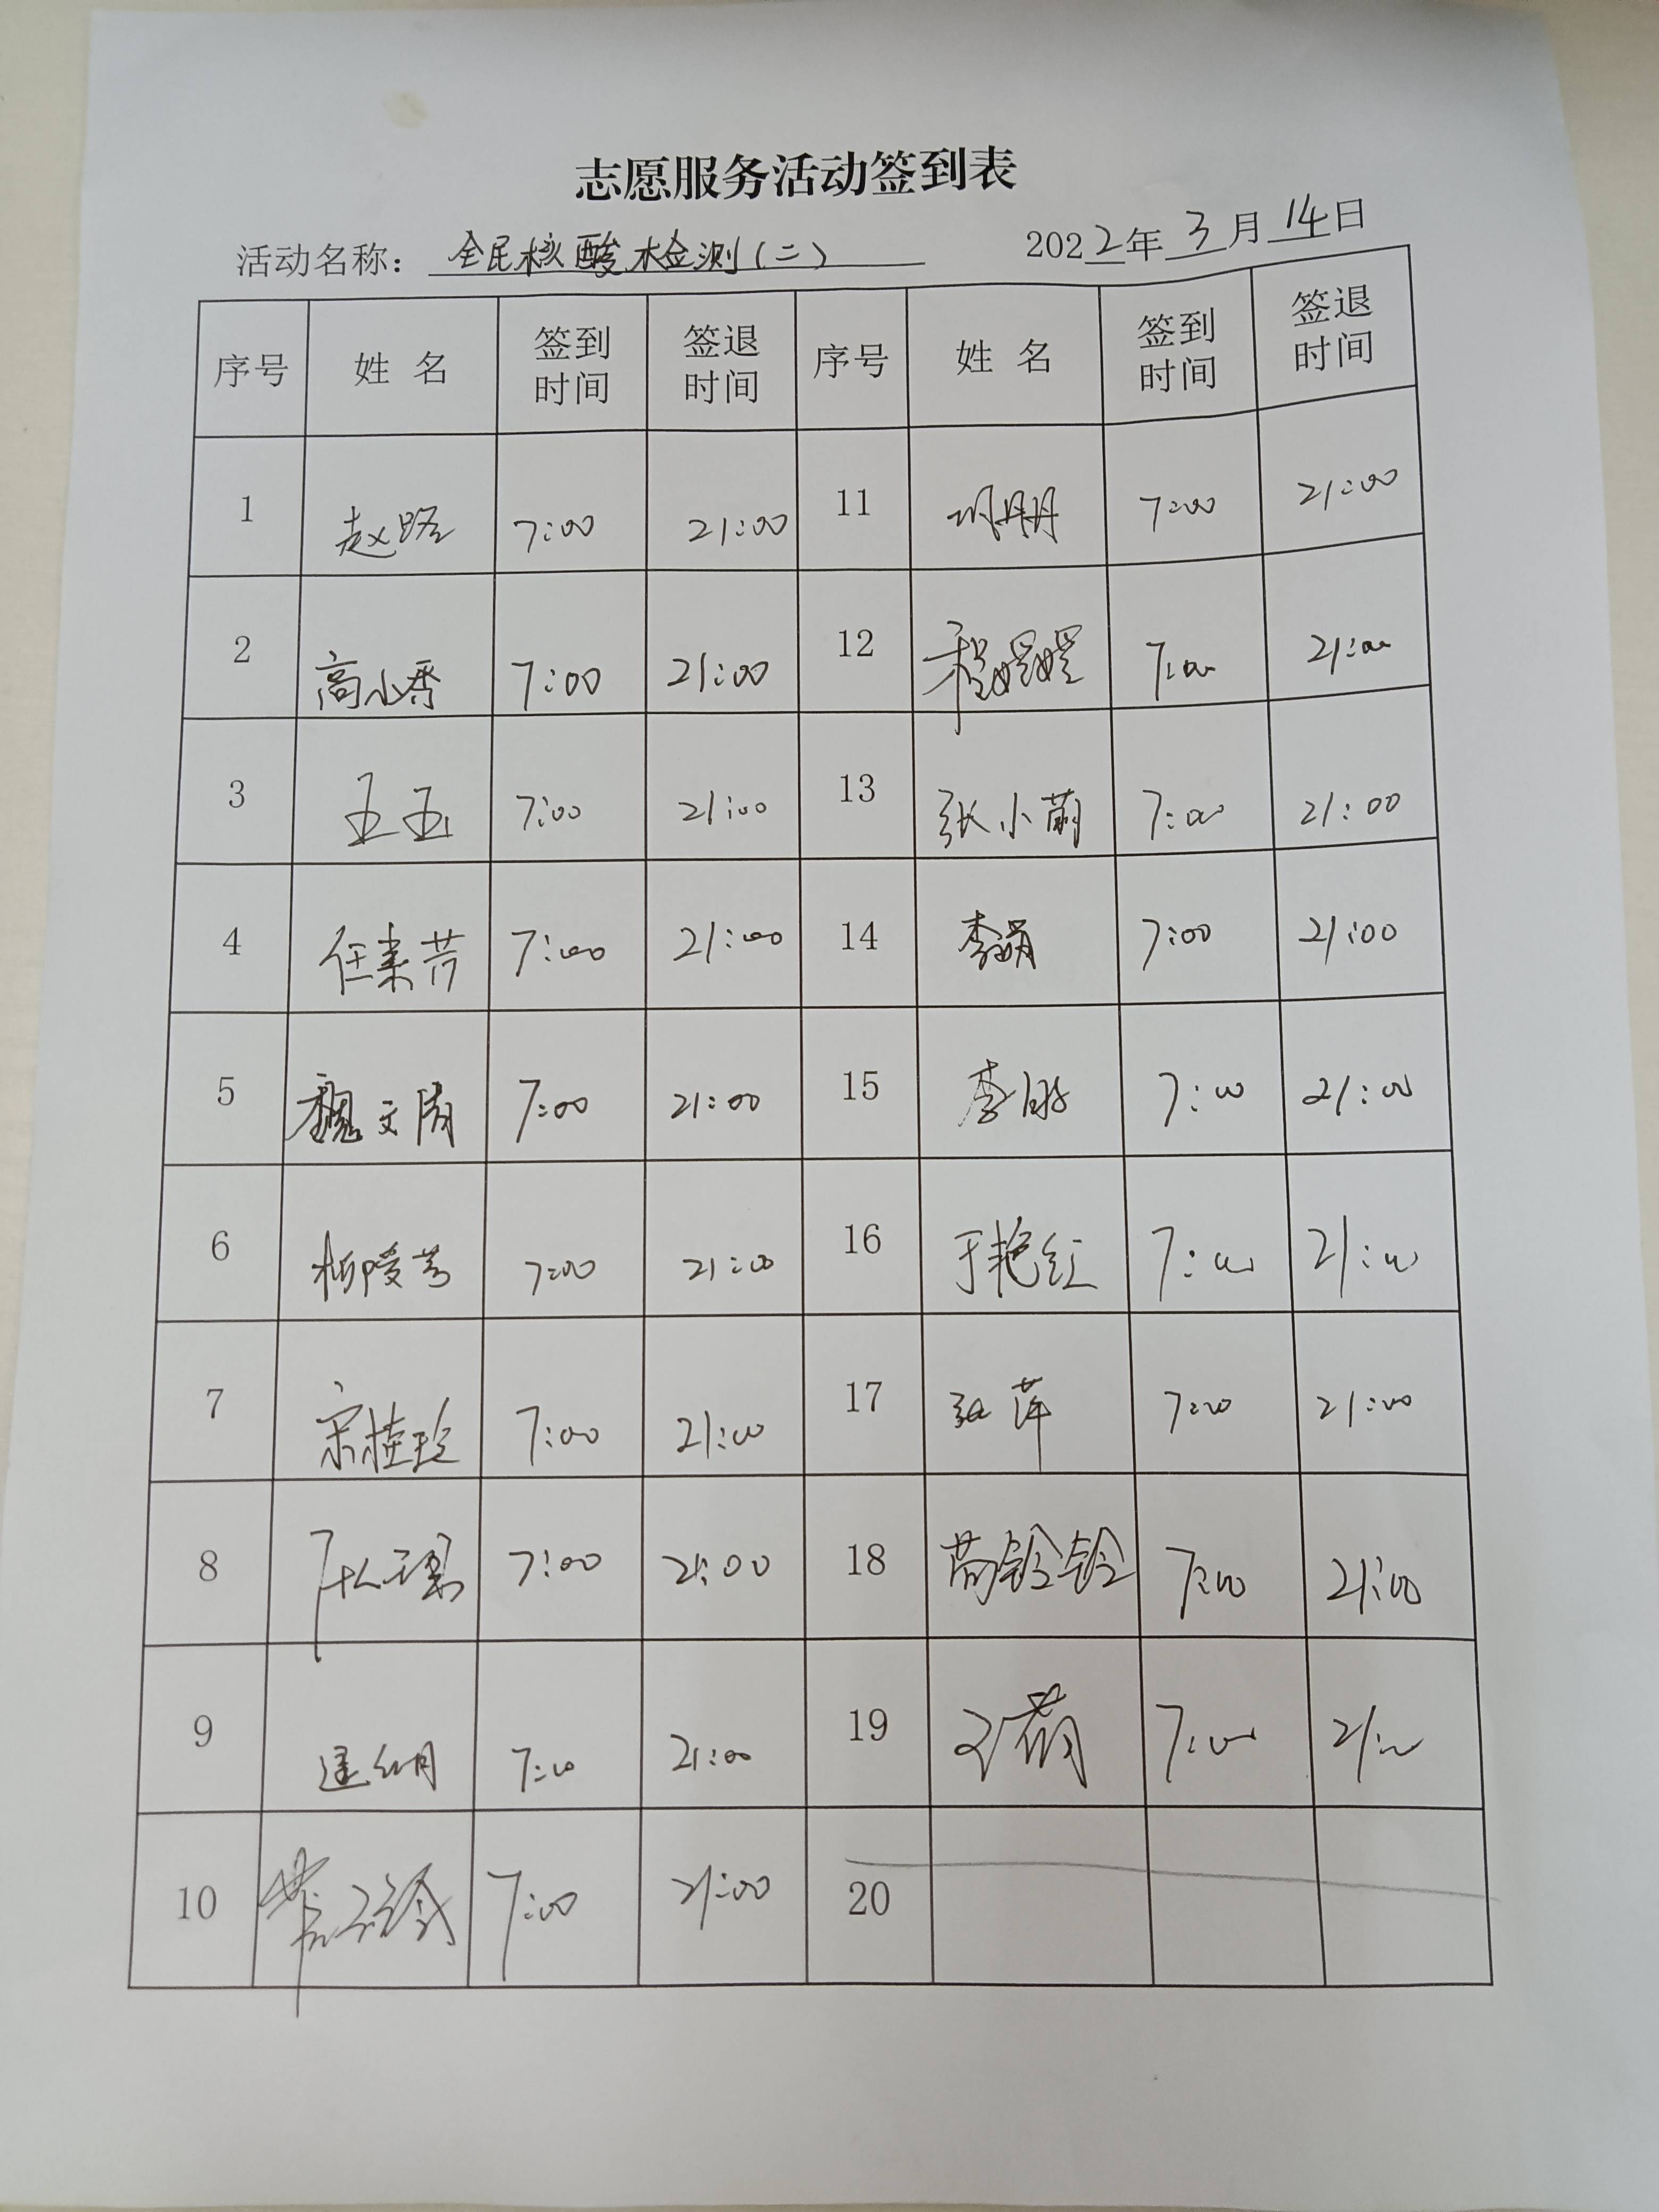 志愿服务活动签到表
活动名称：全民核酸检测（二） 2022年3月14日
序号 姓名 签到时间 签退时间 序号 姓名 签到时间 签退时间
1 赵路 7:00 21:00 11 7:00 21:00
2 高小香 7:00 21:00 12 程媛媛 7:00 21:00
3 王玉 7:00 21:00 13 张小萌 7:00 21:00
4 任素芳 7:00 21:00 14 李娟 7:00 21:00
5 魏文青 7:00 21:00 15 李 7:00 21:00
6 柳 7:00 21:00 16 于艳红 7:00 21:00
7 宋桂玲 7:00 21:00 17 张萍 7:00 21:00
8 7:00 21:00 18 苘铃铃 7:00 21:00
9 7:00 21:00 19 7:00 21:00
10 7:00 21:00 20